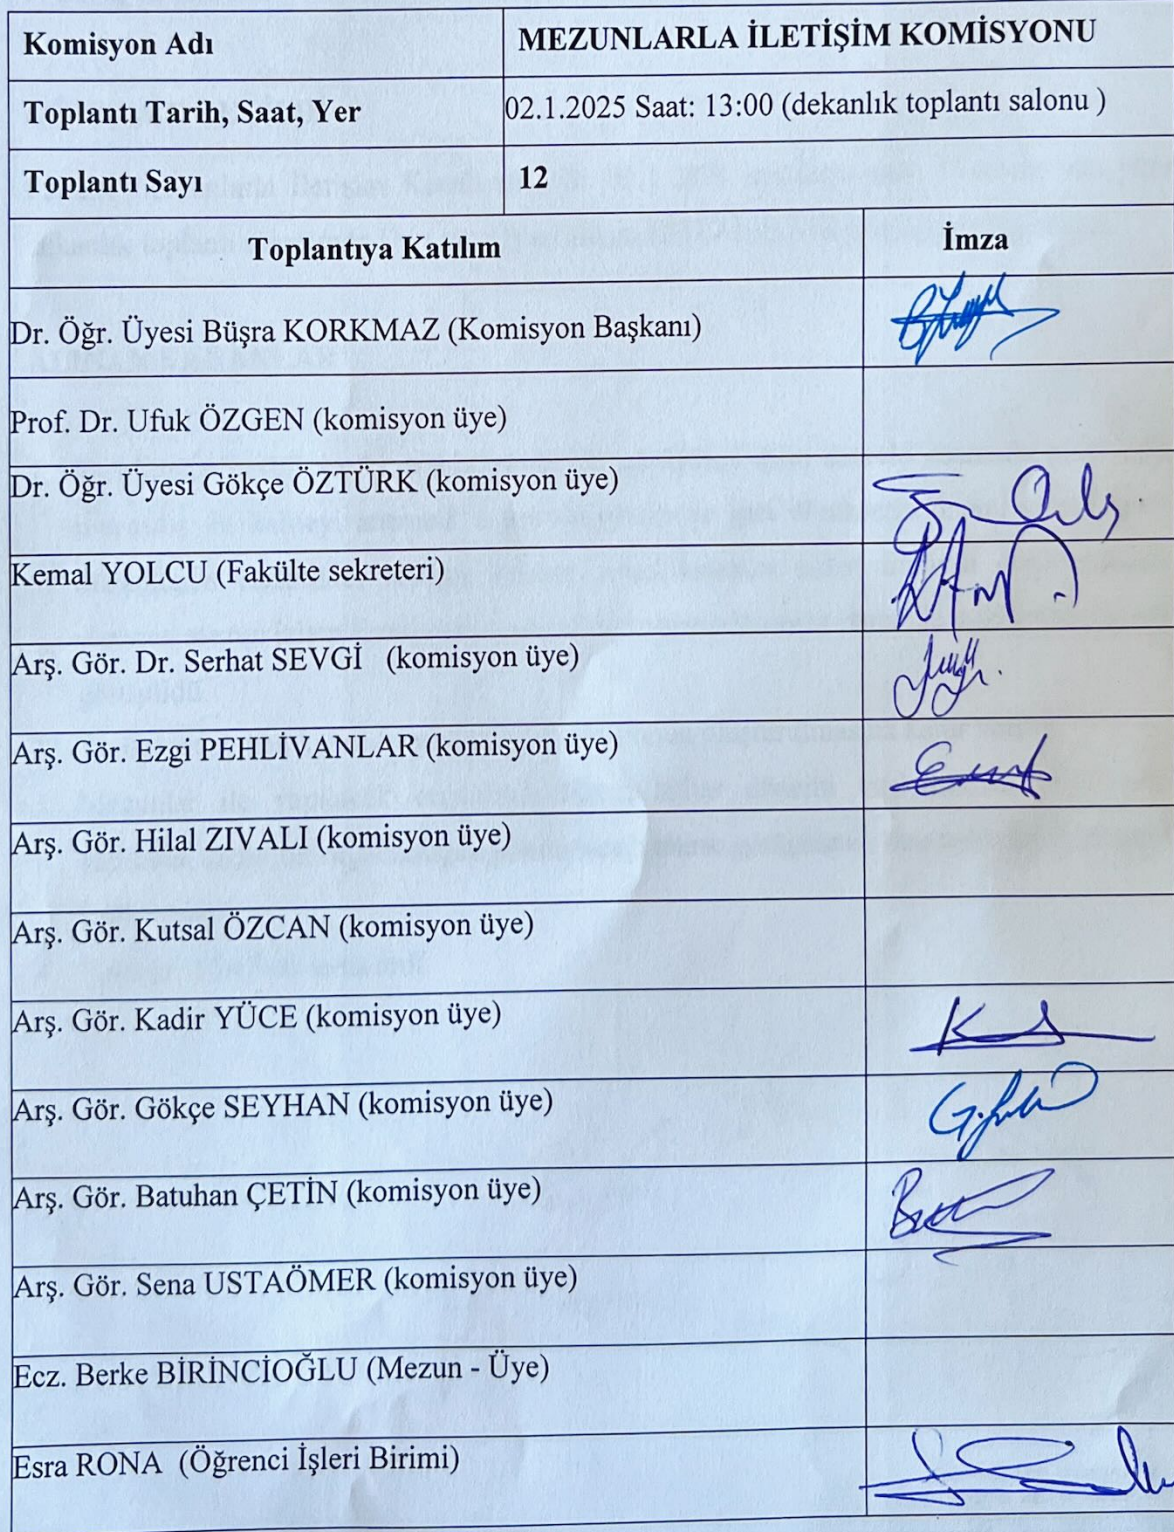 Komisyon Adı
MEZUNLARLA İLETİŞİM KOMİSYONU
Toplantı Tarih, Saat, Yer
02.1.2025 Saat: 13:00 (dekanlık toplantı salonu )
Toplantı Sayı
12
Toplantıya Katılım
İmza
Dr. Öğr. Üyesi Büşra KORKMAZ (Komisyon Başkanı)
Prof. Dr. Ufuk ÖZGEN (komisyon üye)
Dr. Öğr. Üyesi Gökçe ÖZTÜRK (komisyon üye)
Kemal YOLCU (Fakülte sekreteri)
Arş. Gör. Dr. Serhat SEVGİ (komisyon üye)
Arş. Gör. Ezgi PEHLİVANLAR (komisyon üye)
Arş. Gör. Hilal ZIVALI (komisyon üye)
Arş. Gör. Kutsal ÖZCAN (komisyon üye)
Arş. Gör. Kadir YÜCE (komisyon üye)
Arş. Gör. Gökçe SEYHAN (komisyon üye)
Arş. Gör. Batuhan ÇETİN (komisyon üye)
Arş. Gör. Sena USTAÖMER (komisyon üye)
Ecz. Berke BİRİNCİOĞLU (Mezun - Üye)
Esra RONA (Öğrenci İşleri Birimi)